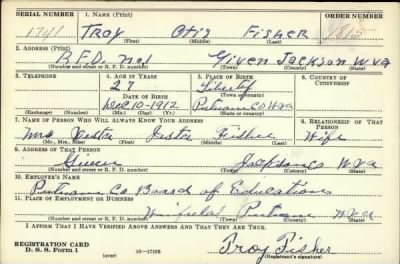 SERIAL NUMBER 1. NAME (Print) ORDER NUMBER
1741 Troy Otis Fisher
(First) (Middle) (Last)
2. ADDRESS (Print)
R.F.D. No 1 Given Jackson W.Va
(Number and street or R. F. D. number) (Town) (County) (State)
3. TELEPHONE 4. AGE IN YEARS 5. PLACE OF BIRTH 6. COUNTRY OF CITIZENSHIP
27 Liberty
DATE OF BIRTH (Town or county)
Dec 10-1912 Putnam Co. W.Va
(Exchange) (Number) (Mo.) (Day) (Yr.) (State or country)
7. NAME OF PERSON WHO WILL ALWAYS KNOW YOUR ADDRESS 8. RELATIONSHIP OF THAT PERSON
Mrs Fisher Wife
(Mr., Mrs., Miss) (First) (Middle) (Last)
9. ADDRESS OF THAT PERSON
Given Jackson W.Va
(Number and street or R. F. D. number) (Town) (County) (State)
10. EMPLOYER'S NAME
Putnam Co. Board of Education
11. PLACE OF EMPLOYMENT OR BUSINESS
Winfield Putnam W.Va
(Number and street or R. F. D. number) (Town) (County) (State)
I AFFIRM THAT I HAVE VERIFIED ABOVE ANSWERS AND THAT THEY ARE TRUE.
REGISTRATION CARD
D. S. S. Form 1 (over) Troy Fisher
(Registrant's signature)